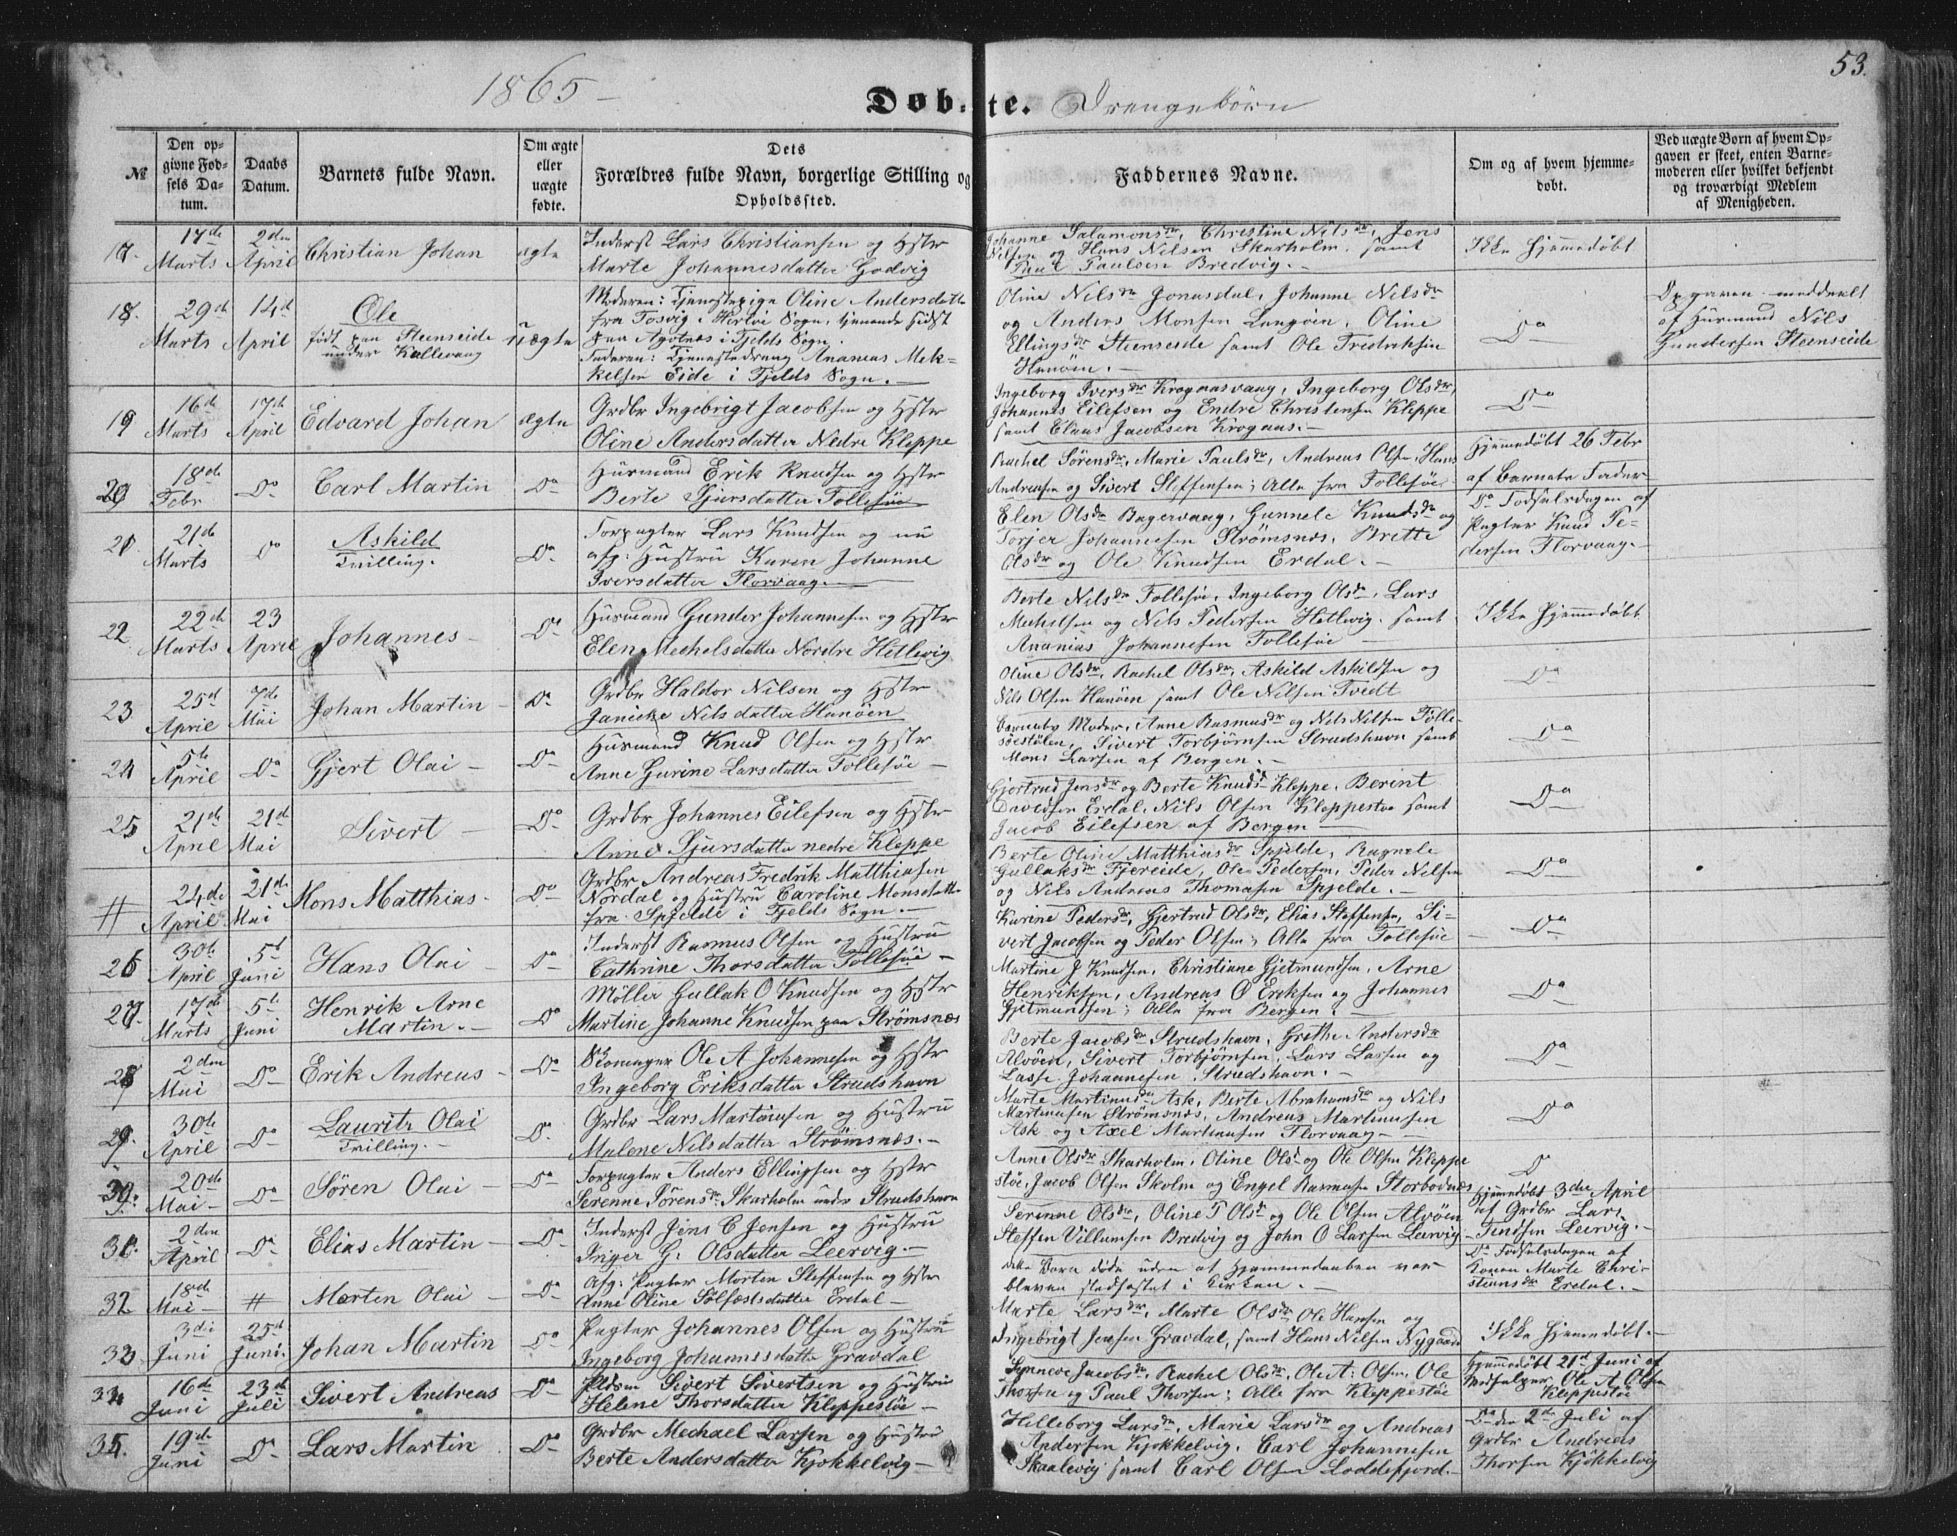 1865 –
Døbte. Drengebørn
53.
№
Den opgivne Fødsels Datum.
Daabs Datum.
Barnets fulde Navn.
Om ægte eller uægte fødte.
Dets Forældres fulde Navn, borgerlige Stilling og Opholdssted.
Faddernes Navne.
Om og af hvem hjemmedøbt.
Ved uægte Børn af hvem Opgaven er skeet, enten Barnemoderen eller hvilket bekjendt og troværdigt Medlem af Menigheden.
17. 17de Marts 2den April Christian Johan ægte
Inderst Lars Christiansen og Hstr
Marte Johannesdatter Godvig
Johanne Salamonsdr, Christine Nilsdr, Jens
Nilsen og Hans Nilsen Skarholm, samt
Paul Paulsen Bredvig. –
Ikke hjemmedøbt
18. 29de Marts 14de April Ole
født paa Steenseide
under Kallevaag
uægte
Moderen: Tjenestepige Oline Andersdatter
fra Tosvig i Herlø Sogn, tjenende sidst
paa Agotnes i Fjelds Sogn.
Faderen: Tjenestedreng Ananias Mek-
kelsen Eide i Fjelds Sogn. –
Oline Nilsdr Jonasdal, Johanne Nilsdr
og Anders Monsen Langøen, Oline
Ellingsdr Steenseide samt Ole Fredriksen
Hanøen. –
Do
Opgaven meddeelt
af Huusmand Nils
Gundersen Steenseide
19 16de Marts 17de April Edvard Johan ægte
Grdbr Ingebrigt Jacobsen og Hstr
Oline Andersdatter Nedre Kleppe
Ingeborg Iversdr Krogaasvaag, Ingeborg Olsdr,
Johannes Eilefsen og Endre Christensen Kleppe
samt Claus Jacobsen Krogaas. –
Do
20 18de Febr Do Carl Martin Do
Huusmand Erik Knudsen og Hstr
Berte Sjursdatter Follesøe
Rachel Sørensdr, Marie Paulsdr, Andreas Olsen, Hans
Andreasen og Sivert Steffensen; Alle fra Follesøe
Hjemmedøbt 26 Febr
af Barnets Fader
21. 21de Marts Do Askild
Tvilling.
Do
Forpagter Lars Knudsen og nu
afg: Hustru Karen Johanne
Iversdatter Florvaag. –
Elen Olsdr Bagervaag, Gunnele Knudsdr og
Torjer Johannesen Strømsnes, Brette
Olsdr og Ole Knudsen Erdal. –
Do Fødselsdagen af
Pagter Knud Pe-
dersen Florvaag. –
22 22de Marts 23 April Johannes – Do
Huusmand Gunder Johannesen og Hstr
Elen Mechelsdatter Nordre Hetlevig
Berte Nilsdr Follesøe, Ingeborg Olsdr, Lars
Mechelsen og Nils Pedersen Hetlevig samt
Ananias Johannesen Follesøe –
Ikke hjemmedøbt
23 25de April 7de Mai Johan Martin – Do
Grdbr Haldor Nilsen og Hstr
Janicke Nilsdatter Hanøen
Oline Olsdr, Rachel Olsdr, Askild Askildsen og
Nils Olsen Hanøen samt Ole Nilsen Tvedt
Do
24 5te April Do Gjert Olai – Do
Huusmand Knud Olsen og Hstr
Anne Gurine Larsdatter Follesøe –
Barnets Moder, Anne Rasmusdr og Nils Nilsen Folle-
søestølen, Sivert Torbjørnsen Strudshavn samt
Mons Larsen af Bergen. –
Do
25 21de April 21de Mai Sivert – Do
Grdbr Johannes Eilefsen og Hstr
Anne Sjursdatter nedre Kleppe
Gjertrud Jensdr og Berte Knudsdr Kleppe, Berint
Davidsen Erdal, Nils Olsen Kleppestøe samt
Jacob Eilefsen af Bergen –
Do
# 24de April 21de Mai Mons Matthias – Do
Grdbr Andreas Fredrik Matthiasen
Nordal og Hustru Caroline Monsdatter
fra Spjelde i Fjelds Sogn –
Berte Oline Matthiasdr Spjelde, Ragnele
Gullaksdr Fjereide, Ole Pedersen, Peder Nilsen
og Nils Andreas Thomasen Spjelde. –
Do
26 30te April 5te Juni Hans Olai – Do
Inderst Rasmus Olsen og Hustru
Cathrine Thorsdatter Follesøe –
Karine Pedersdr, Gjertrud Olsdr, Elias Steffensen, Si-
vert Jacobsen og Peder Olsen; Alle fra Follesøe
Do
27. 17de Marts 5te Juni Henrik Arne
Martin. –
Do
Møller Gullak O Knudsen og Hstr
Martine Johanne Knudsen paa Strømsnæs
Martine J Knudsen, Christiane Gjetmundsen, Arne
Henriksen, Andreas O Eriksen og Johannes
Gjetmundsen; Alle fra Bergen. –
Do
28 2den Mai Do Erik Andreas – Do
Skomager Ole A Johannesen og Hstr
Ingeborg Eriksdatter Strudshavn
Berte Jacobsdr Strudshavn, Grethe Andersdr
Alvøen, Sivert Torbjørnsen, Lars Lassen og
Lasse Johannesen Strudshavn. –
Do
29. 30te April Do Lauritz Olai
Tvilling. –
Do
Grdbr Lars Martinusen og Hustru
Malene Nilsdatter Strømsnes. –
Marte Martinusdr Ask, Berte Abrahamsdr og Nils
Martinusen Strømsnæs, Andreas Martinusen
Ask og Axel Martinusen Florvaag –
Do
30. 20de Mai – Do Søren Olai – Do
Forpagter Anders Ellingsen og Hstr
Serenne Sørensdr Skarholm under Strudshavn
Anne Olsdr Skarholm, Oline Olsdr og Ole Olsen Kleppe
støe, Jacob Olsen Skolm og Engel Rasmusen Storbodnæs
Do
31. 2den April Do Elias Martin – Do
Inderst Jens C Jensen og Hustru
Inger G: Olsdatter Leervig. –
Serinne Olsdr, Oline T Olsdr og Ole Olsen Alvøen
Steffen Villumsen Bredvig og John O Larsen Leervig
Hjemmedøbt 3die April
af Grdbr Lars
Leervig. –
32 18de Mai – # Morten Olai – Do
Afg: Pagter Morten Steffensen og Hstr
Anne Oline Sølfæstsdatter Erdal –
dette Barn døde uden at Hjemmedaaben var
bleven stadfæstet i Kirken. –
Do Fødselsdagen af
Konen Marte Chri-
stiansdr Erdal. –
33 3die Juni 25de Juni. Johan Martin Do
Pagter Johannes Olsen og Hustru
Ingeborg Johannesdatter Gravdal
Marte Larsdr, Marte Olsdr Ole Hansen og
Ingebrigt Jensen Gravdal, samt Hans Nilsen Nygaard
Ikke hjemmedøbt. –
34 16de Juni 23de Juli Sivert Andreas Do
Sivert Sivertsen og Hustru
Helene Thorsdatter Kleppestøe –
Synneve Jacobsdr, Rachel Olsdr, Ole A: Olsen, Ole
Thorsen og Paul Thorsen; Alle fra Kleppestøe
Hjemmedøbt 21de Juni af
Ole A Olsen
Kleppestøe
35. 19de Juni Do Lars Martin Do
Grdbr Mechael Larsen og Hustru
Berte Andersdatter Kjøkkelvig –
Hilleborg Larsdr, Marie Larsdr og Andreas
Andersen Kjøkkelvig, Carl Johannesen
Skaalevig samt Carl Olsen Loddefjord. –
Do den 2den Juli af
Grdbr Andreas
Thorsen Kjøkkelvig